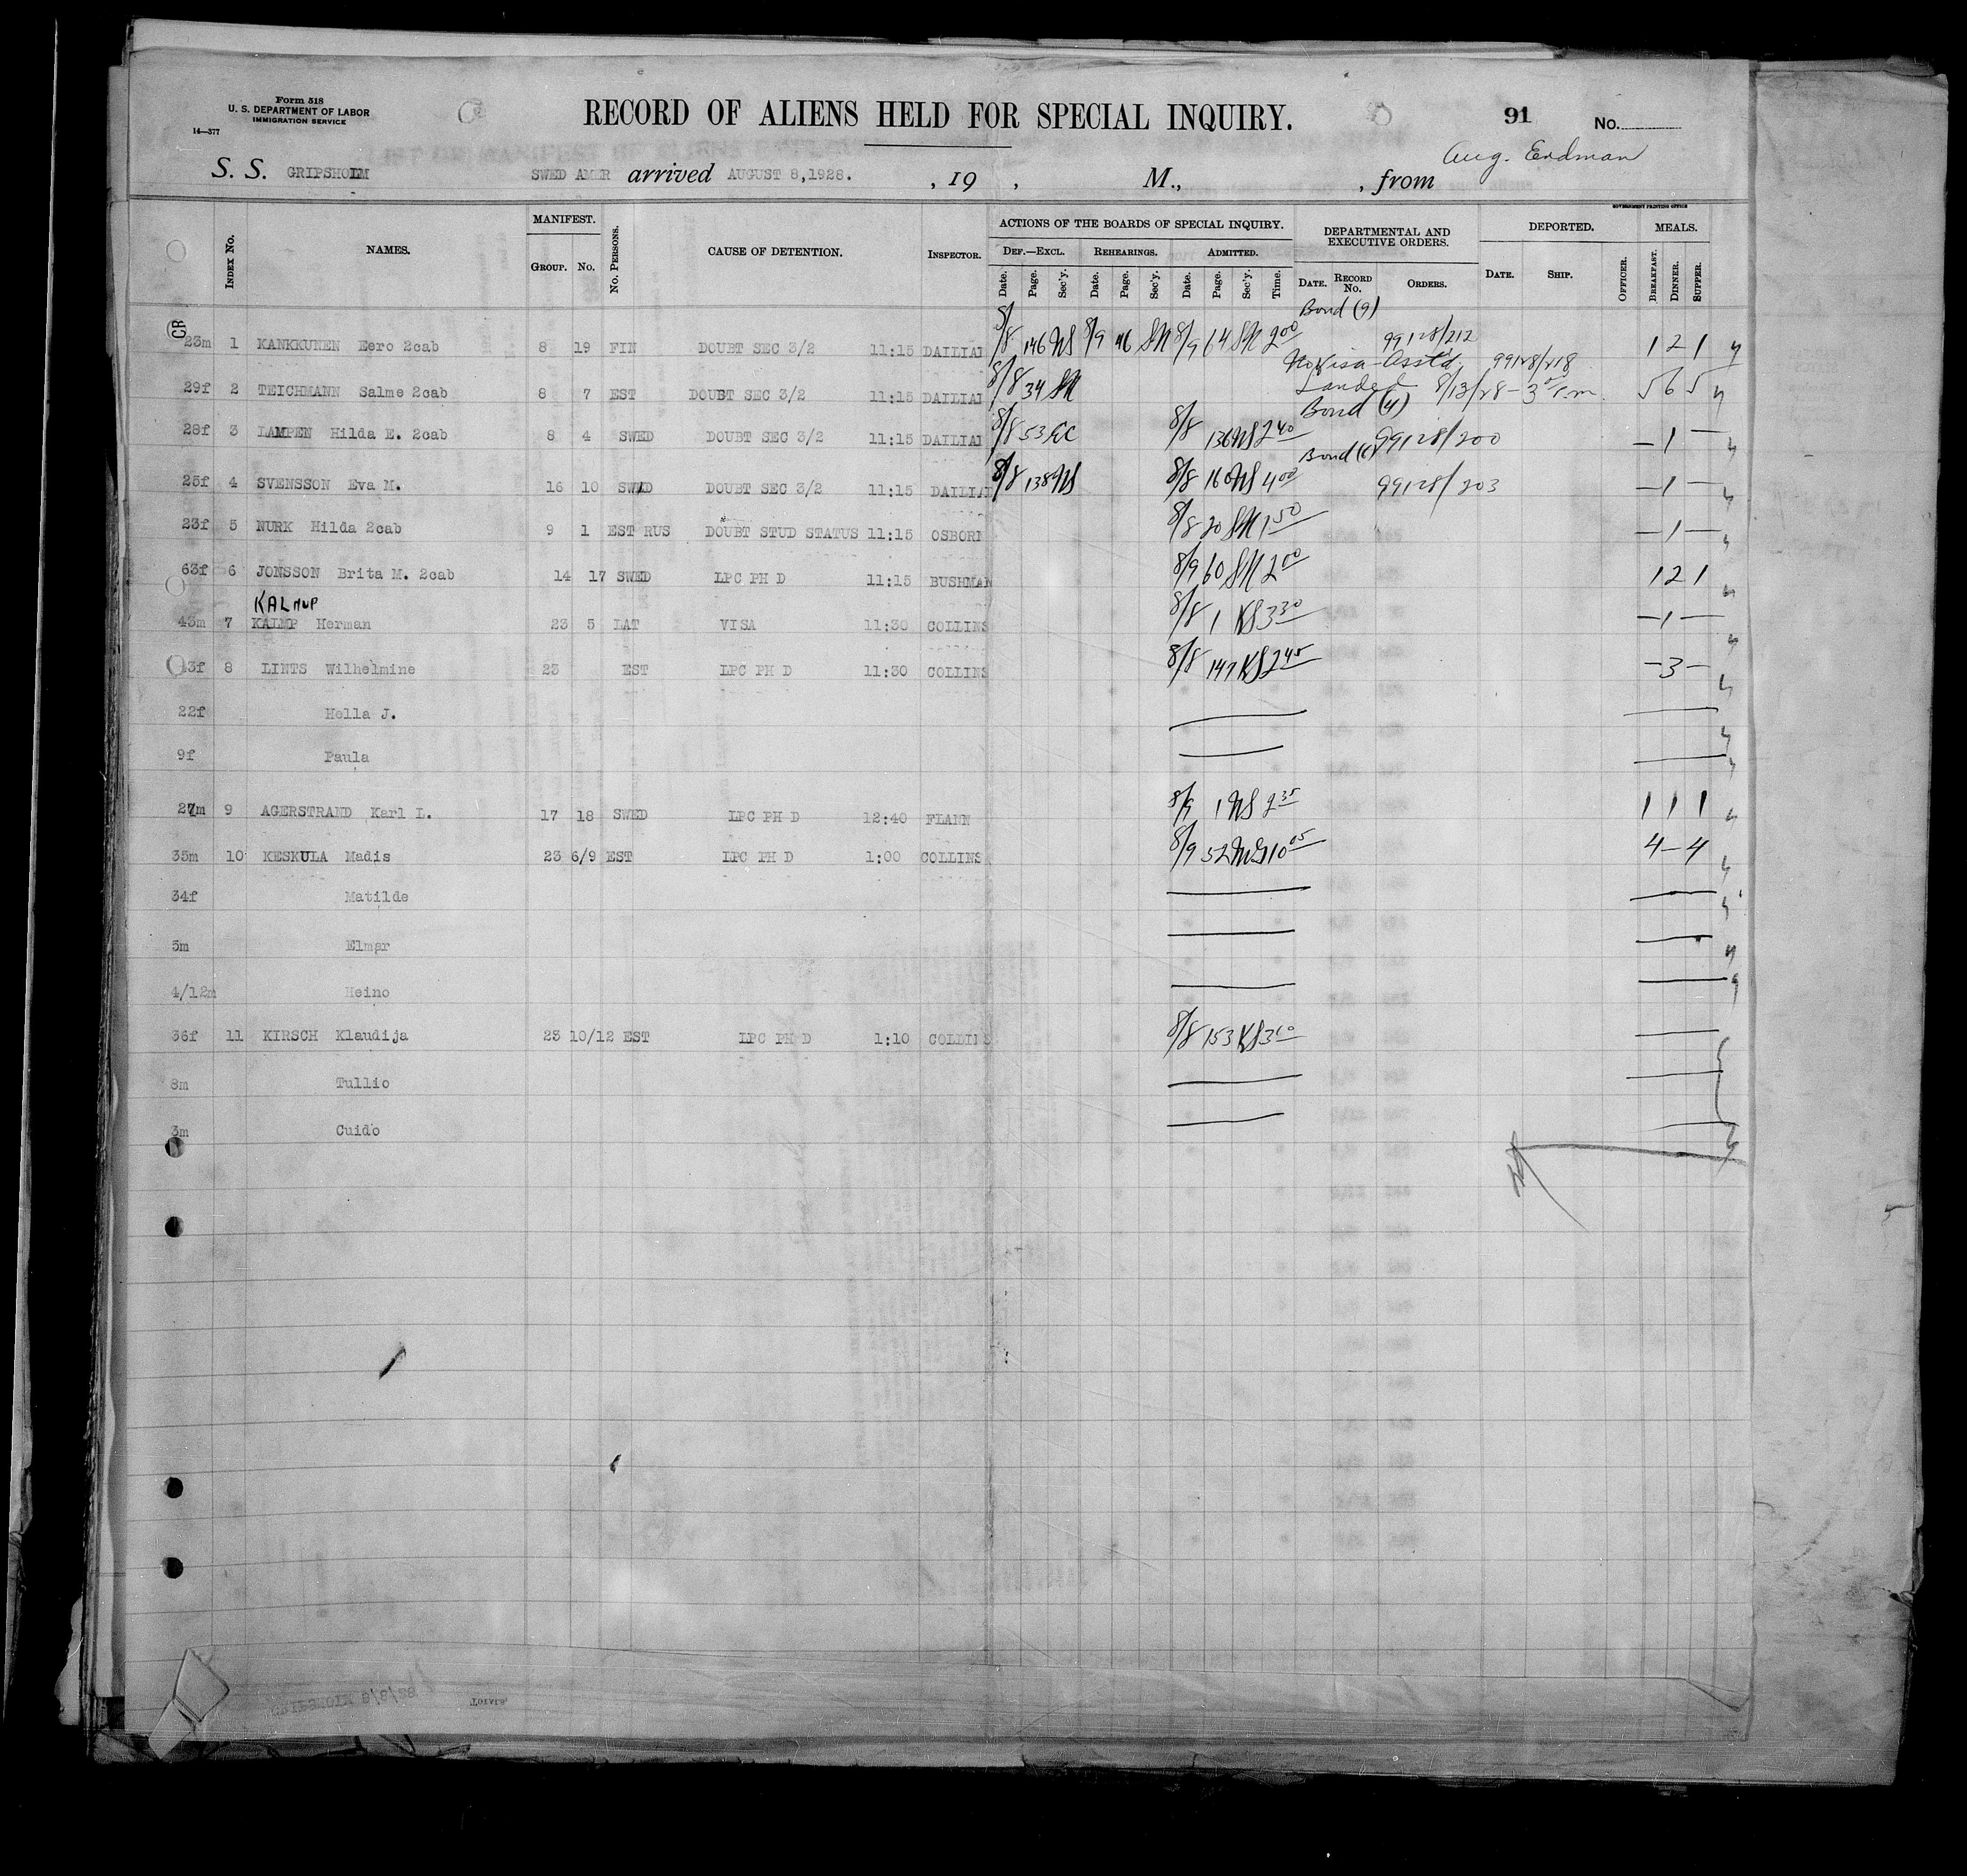 Form 518
U. S. DEPARTMENT OF LABOR
IMMIGRATION SERVICE
14—377
RECORD OF ALIENS HELD FOR SPECIAL INQUIRY.
91 No.
Aug. Erdman
S. S. GRIPSHOLM SWED AMER arrived AUGUST 8,1928. , 19 , M., , from
GOVERNMENT PRINTING OFFICE
INDEX NO. NAMES. MANIFEST. GROUP. NO. NO. PERSONS. CAUSE OF DETENTION. INSPECTOR. ACTIONS OF THE BOARDS OF SPECIAL INQUIRY. DEF.—EXCL. Date. Page. Sec'y. REHEARINGS. Date. Page. Sec'y. ADMITTED. Date. Page. Sec'y. Time. DEPARTMENTAL AND EXECUTIVE ORDERS. DATE. RECORD NO. ORDERS. DEPORTED. DATE. SHIP. OFFICER. MEALS. BREAKFAST. DINNER. SUPPER.
Bond (9)
23m 1 KANKKUNEN Eero 2cab 8 19 FIN DOUBT SEC 3/2 11:15 DAILIAI 8/8 146 NS 8/9 46 SM 8/9 64 SM 2 00 99128/212 1 2 1
No Visa 99128/218
29f 2 TEICHMANN Salme 2cab 8 7 EST DOUBT SEC 3/2 11:15 DAILIAI 8/8 34 SM Landed 8/13/28 - 3 P.m. 5 6 5
Bond (4)
28f 3 LAMPEN Hilda E. 2cab 8 4 SWED DOUBT SEC 3/2 11:15 DAILIAI 8/8 53 EC 8/8 136 NS 2 40 99128/200 — 1 —
Bond
25f 4 SVENSSON Eva M. 16 10 SWED DOUBT SEC 3/2 11:15 DAILIAI 8/8 138 NS 8/8 160 NS 4 00 99128/203 — 1 —
23f 5 NURK Hilda 2cab 9 1 EST RUS DOUBT STUD STATUS 11:15 OSBORN 8/8 20 SM 1 50 — 1 —
63f 6 JONSSON Brita M. 2cab 14 17 SWED LPC PH D 11:15 BUSHMAN 8/9 60 SM 2 00 1 2 1
KALNUP
43m 7 KAIMP Herman 23 5 LAT VISA 11:30 COLLINS 8/8 1 KS 3 30 — 1 —
43f 8 LINTS Wilhelmine 23 EST LPC PH D 11:30 COLLINS 8/8 147 KS 2 45 — 3 —
22f Hella J.
9f Paula
27m 9 AGERSTRAND Karl L. 17 18 SWED LPC PH D 12:40 FLANN 8/9 1 NS 9 35 1 1 1
35m 10 KESKULA Madis 23 6/9 EST LPC PH D 1:00 COLLINS 8/9 52 10 05 4 — 4
34f Matilde
5m Elmar
4/12m Heino
36f 11 KIRSCH Klaudija 23 10/12 EST LPC PH D 1:10 COLLINS 8/8 153 KS 3 10
8m Tullio
3m Cuido
GRIPSHOLM 8/8/28